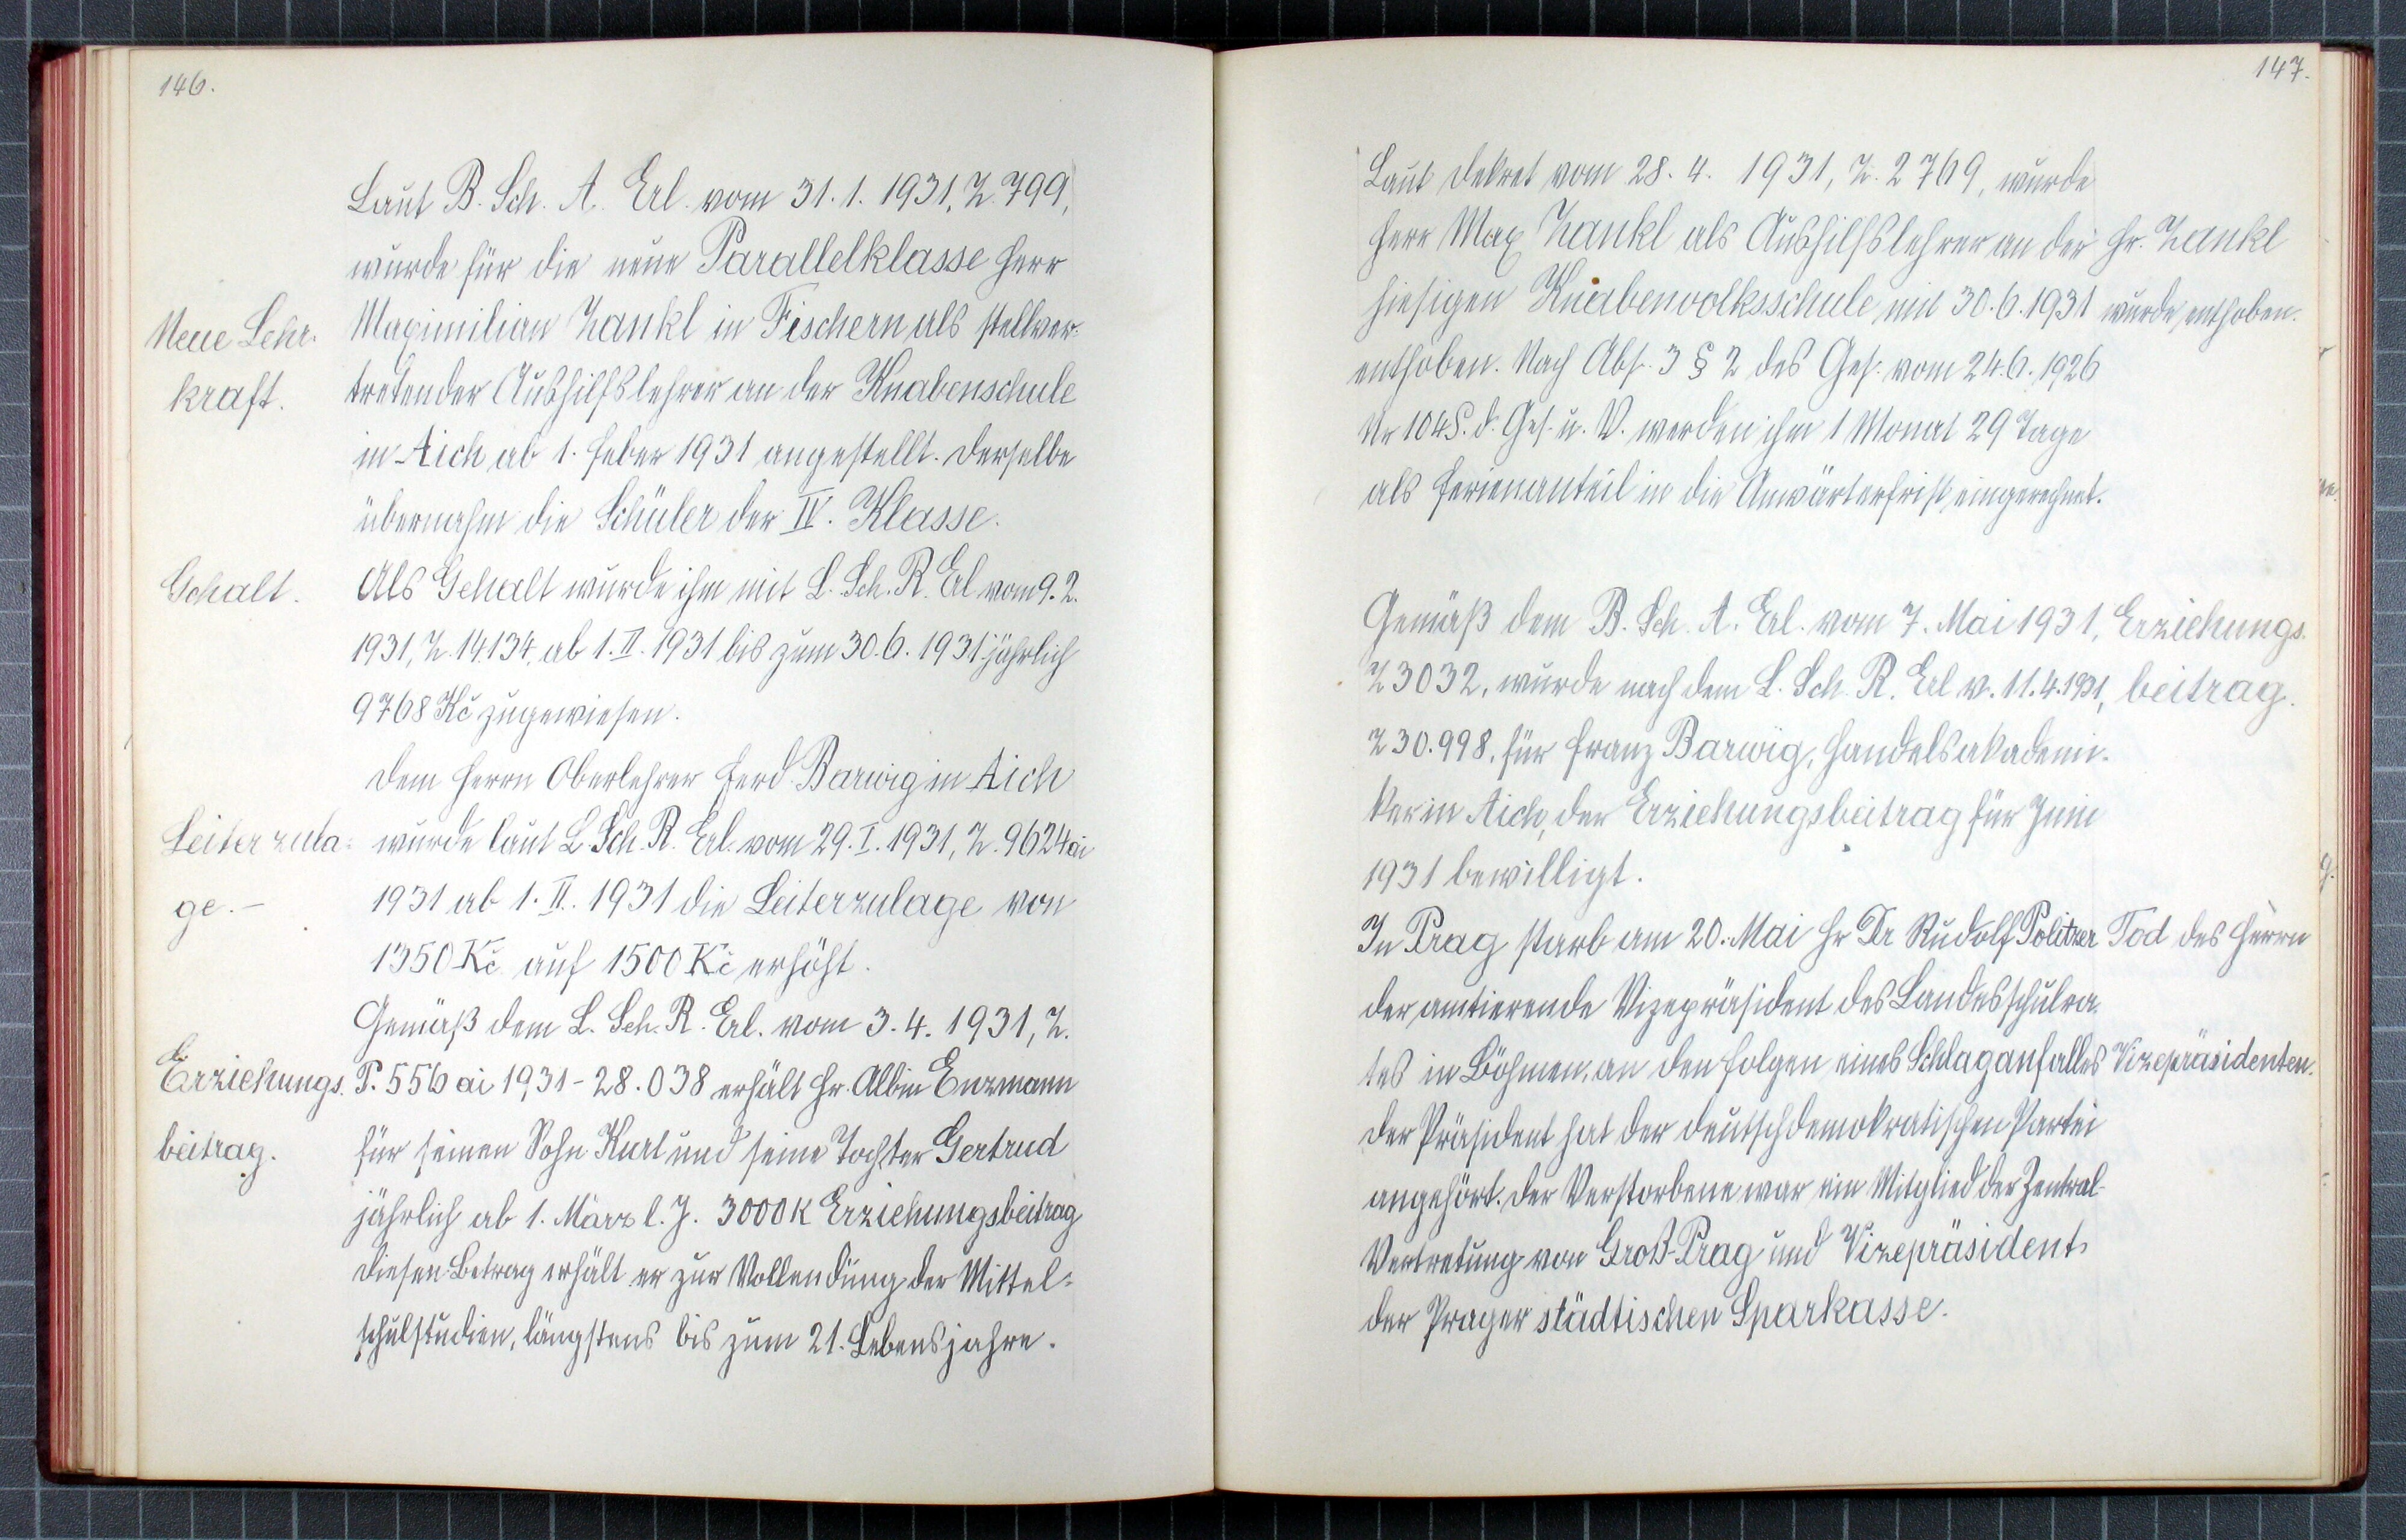 146.
Laut B. Sch. A. Erl. vom 31. 1. 1931, Z. 799,
wurde für die neue Parallelklasse Herr
Neue Lehr-
Maximilian Zankl in Fischern als stellver-
kraft.
tretender Aushilfslehrer an der Knabenschule
in Aich ab 1. Feber 1931 angestellt. Derselbe
übernahm die Schüler der IV. Klasse.
Gehalt.
Als Gehalt wurde ihm mit L. Sch. R. Erl vom 9. 2.
1931, Z. 14134, ab 1. II. 1931 bis zum 30. 6. 1931 jährlich
9768 Kč zugewiesen.
Dem Herrn Oberlehrer Ferd. Barwig in Aich
Leiterzula-
wurde laut L. Sch. R. Erl. vom 29. I. 1931, Z. 9624 ai
ge. -
1931 ab 1. II. 1931 die Leiterzulage von
1350 Kč auf 1500 Kč erhöht.
Gemäß dem L. Sch. R. Erl. vom 3. 4. 1931, Z.
Erziehungs-
P. 556 ai 1931 - 28.038 erhält Hr. Albin Enzmann
beitrag.
für seinen Sohn Kurt und seine Tochter Gertrud
jährlich ab 1. März l. J. 3000 K Erziehungsbeitrag
Diesen Betrag erhält er zur Vollendung der Mittel-
schulstudien, längstens bis zum 21. Lebensjahre.
147.
Laut Dekret vom 28. 4. 1931, Z. 2769, wurde
Herr Max Zankl als Aushilfslehrer an der
Hr. Zankl
hiesigen Knabenvolksschule mit 30. 6. 1931
wurde enthoben.
enthoben. Nach Abs. 3 § 2 des Ges. vom 24. 6. 1926
Nr 104 S. d. Ges. u. V. werden ihm 1 Monat 29 Tage
als Ferienanteil in die Anwärterfrist eingerechnet.
Gemäß dem B. Sch. A. Erl. vom 7. Mai 1931,
Erziehungs-
Z 3032, wurde nach dem L. Sch. R. Erl v. 11. 4. 1931,
beitrag.
Z 30.998, für Franz Barwig, Handelsakademi-
ker in Aich, der Erziehungsbeitrag für Juni
1931 bewilligt.
In Prag starb am 20. Mai Hr Dr Rudolf Politzer
Tod des Herrn
der amtierende Vizepräsident des Landesschulra-
tes in Böhmen, an den Folgen eines Schlaganfalles
Vizepräsidenten.
Der Präsident hat der deutschdemokratischen Partei
angehört. Der Verstorbene war ein Mitglied der Zentral-
Vertretung von Groß-Prag und Vizepräsident
der Prager städtischen Sparkasse.